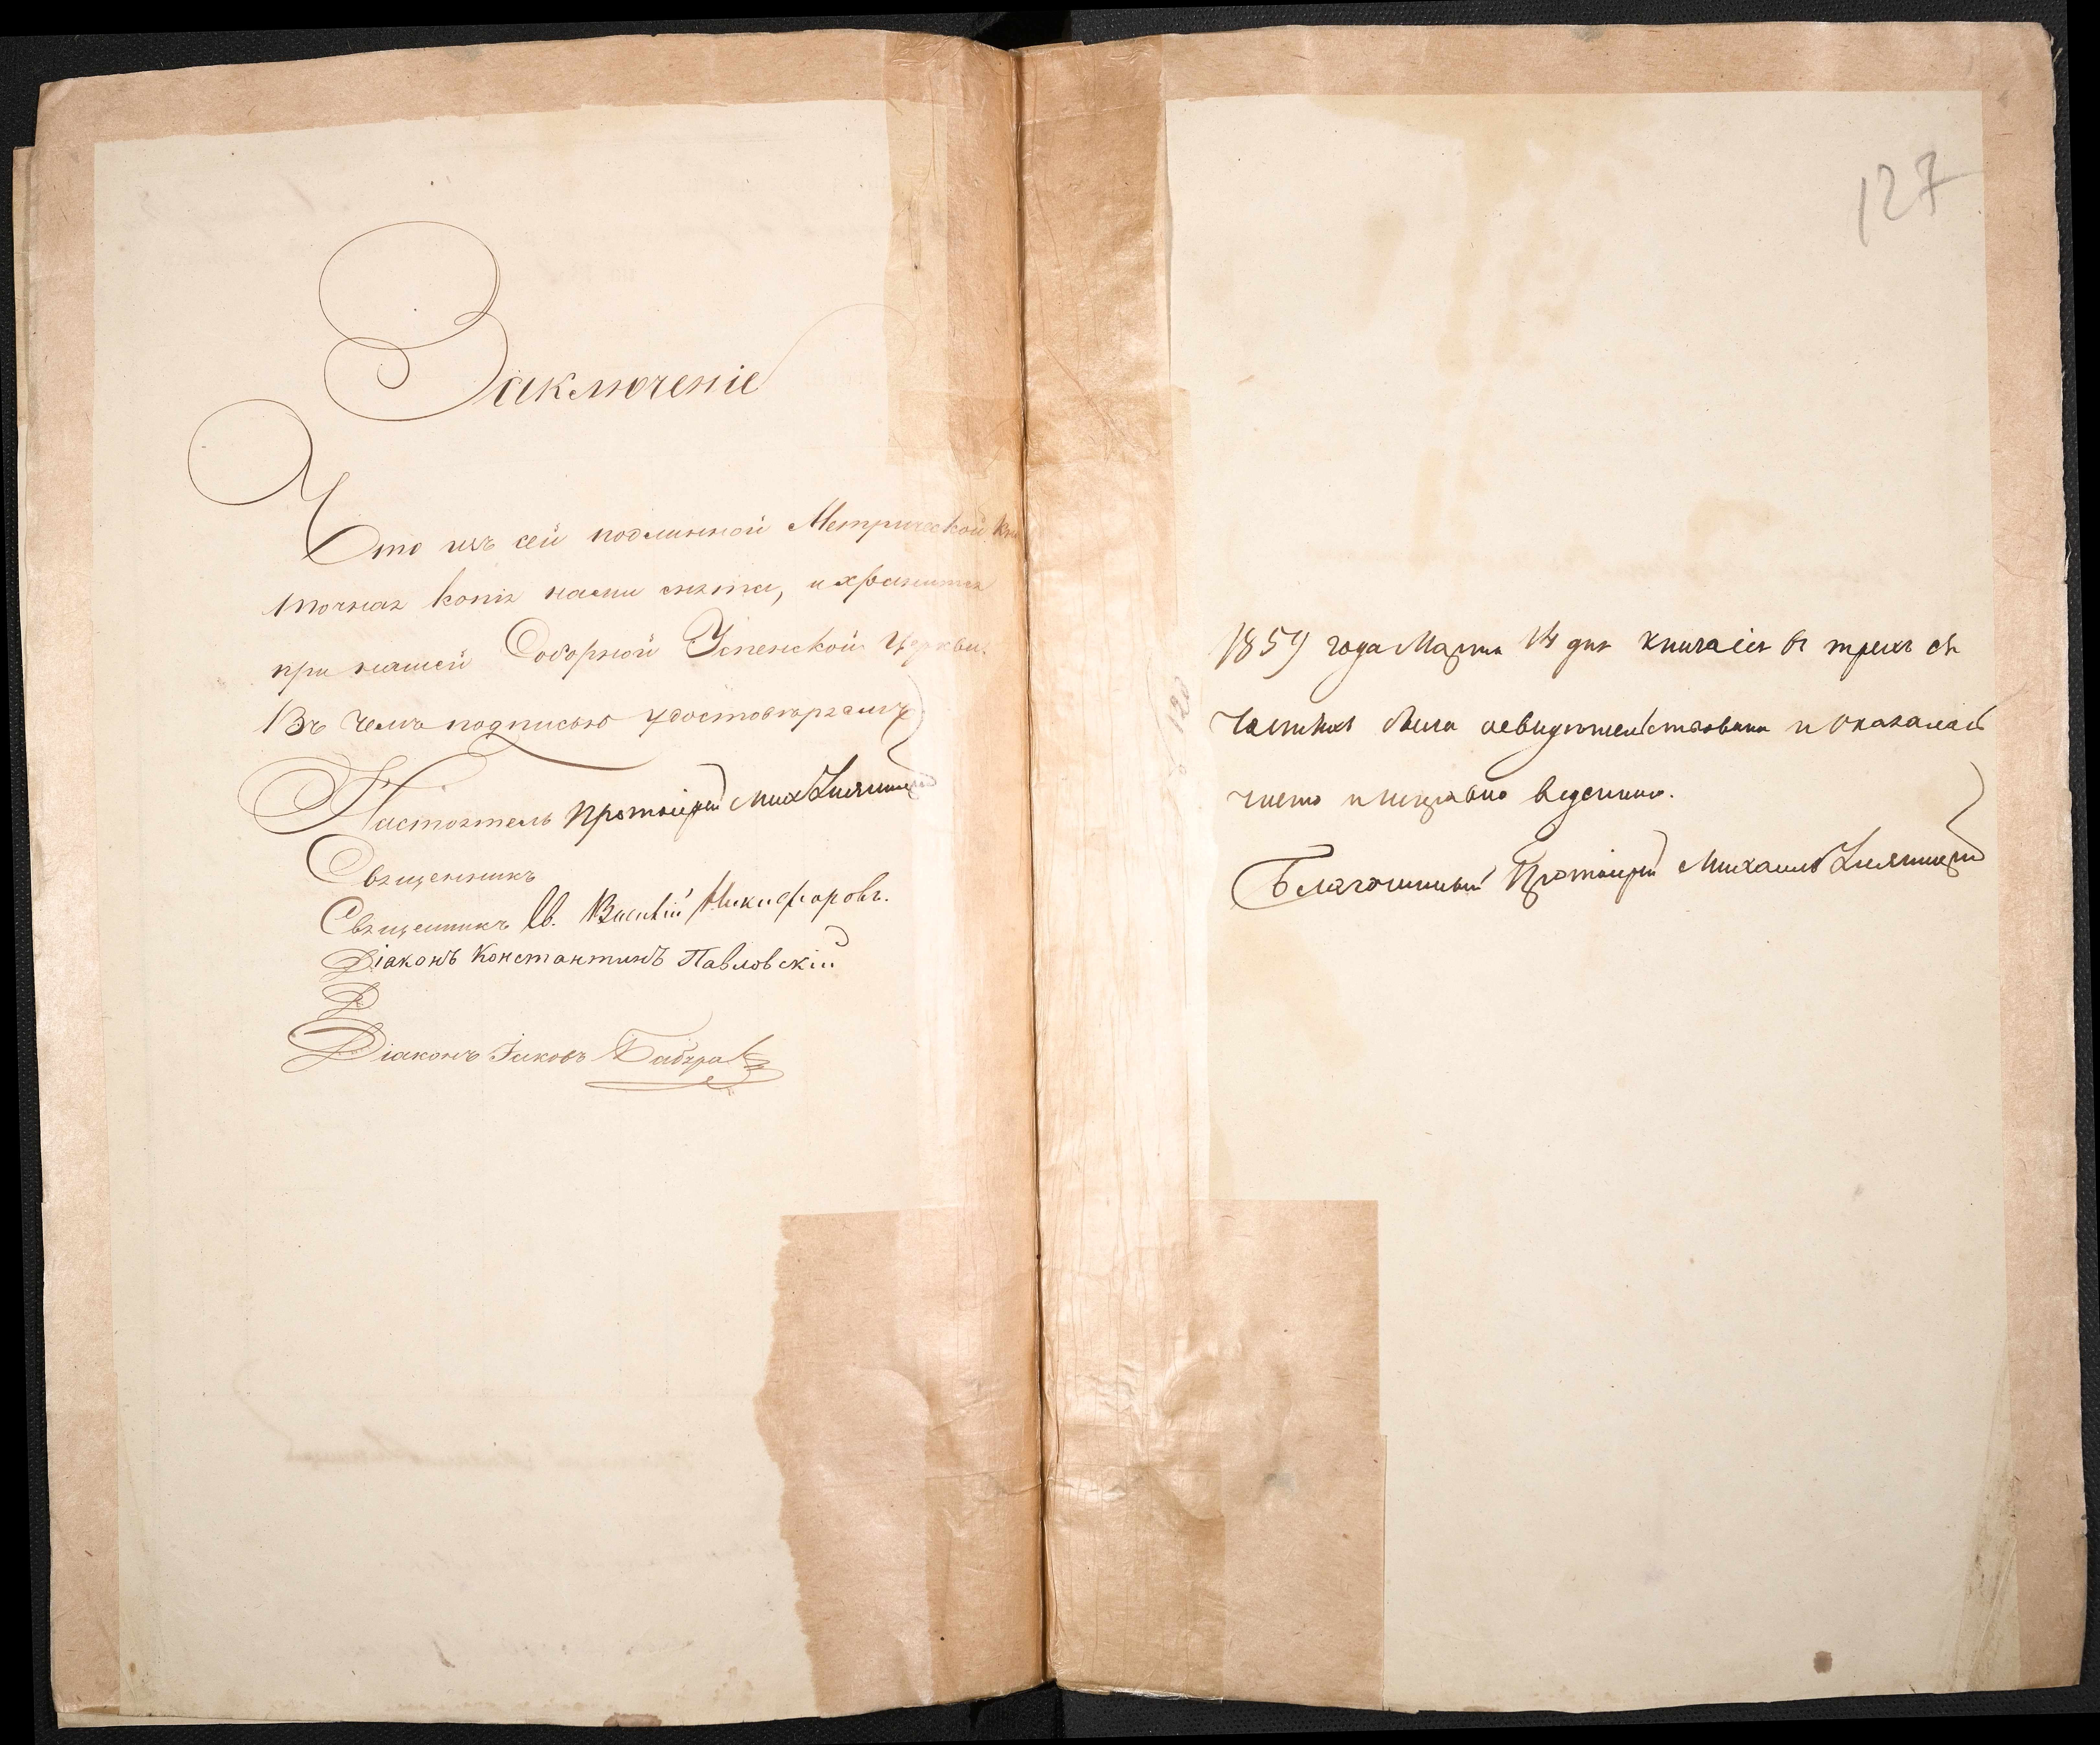 Заключеніе
Что изъ сей подлинной Метрической кни
точная копія нами снята, и хранится
при нашей Соборной Успенской Церкви.
Въ чемъ подписью удостовѣряемъ
Настоятель Протоіерей Мих
Священникъ
Священникъ Св. Василій Никифоровъ.
Діаконъ Константинъ Павловскій
Д
Діаконъ Іаковъ
127
120
1859 года Марта 14 дня книга сія въ трехъ
частяхъ была освидѣтельствована и оказалась
чисто и исправно веденною.
Благочинный Протоіерей Михаилъ